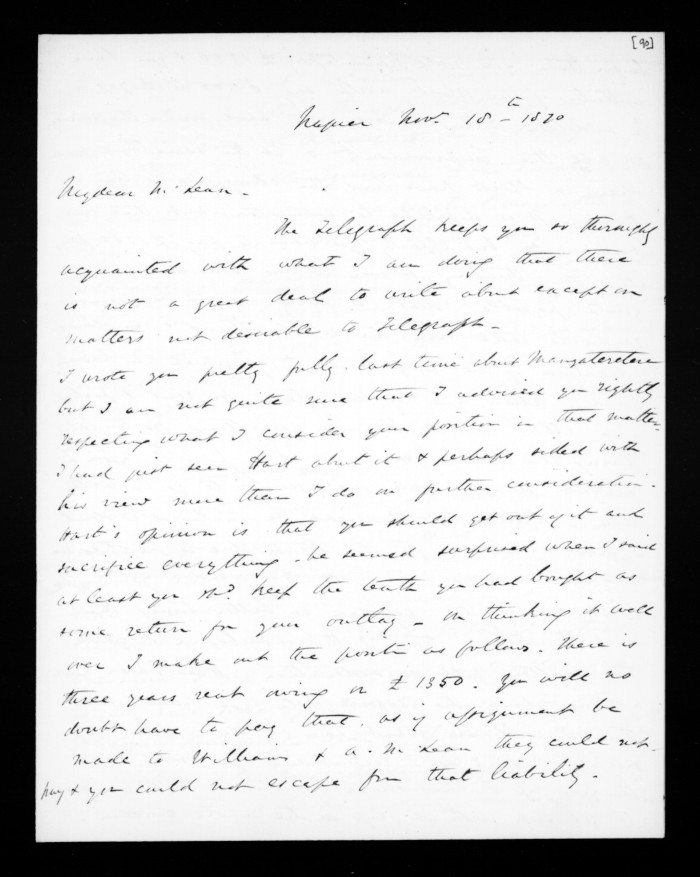 [90]
Napier Novr. 18th 1870
My dear McLean -
The Telegraph keeps you so thoroughly
acquainted with what I am doing that there
is not a great deal to write about except on
matters not desirable to Telegraph -
I wrote you pretty fully last time about Mangateretere
but I am not quite sure that I advised you rightly
respecting what I consider your position in that matter
I had just seen Hart about it & perhaps sided with
his view more than I do on further consideration.
Hart's opinion is that you should get out of it and
sacrifice everything - he seemed surprised when I said
at least you shd. keep the tenth you had bought as
some return for your outlay - On thinking it well
over I make out the positn as follows. There is
three years rent owing or £1350. You will no
doubt have to pay that, as if assignment be
made to Williams & A. McLean they could not
pay & you could not escape from that liability.